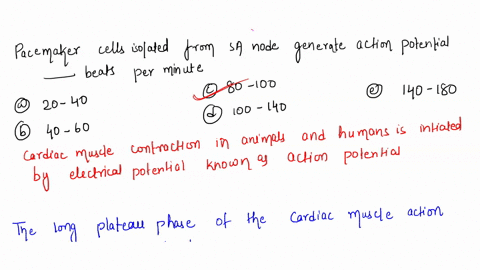 Pacemaker cells isolated from SA node generate action potential
____ beats per minute
(a) 20-40
(b) 40-60
(c) 80-100
(d) 100-140
(e) 140-180
Cardiac muscle contraction in animals and humans is intiated
by electrical potential known as action potential
The long plateau phase of the cardiac muscle action